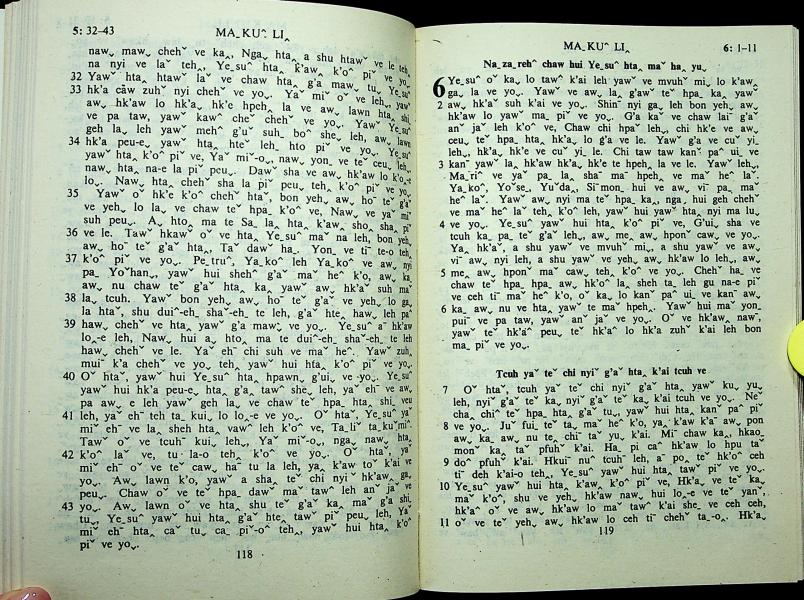 5: 32-43
MA_ KUˆ LI‸
naw‸ maw‸ chehˇ ve ka‸, Nga‸ hta‸ a shu htawˇ ve le teh‸
na nyi ve laˇ teh‸, Ye_suˆ hta‸ k'aw‸ k'oˆ piˇ ve yo‸.
32 Yawˇ hta‸ htawˇ laˇ ve chaw hta‸ g'a maw‸ tu‸ Ye_suˆ
33 hk'a cāw zuhˇ nyi chehˇ ve yo‸. Yaˇ miˇ oˇ ve leh‸, yawˇ
aw‸ hk'aw lo hk'a‸ hk'e hpeh‸ la ve aw‸ lawn hta‸ shi‸
ve pa taw‸ yawˇ kawˇ cheˇ chehˇ ve yo‸. Yawˇ Ye_suˆ
geh la‸ leh yawˇ mehˆ g'uˇ suh_ boˆ she‸ leh‸ aw‸ lawn
34 hk'a peu-e‸ yawˇ hta‸ hteˇ leh_ hto piˇ ve yo‸. Ye_suˆ
yawˇ hta‸ k'oˆ piˇ ve‸ Yaˇ miˇ-o‸, naw‸ yon_ ve teˇ ceu_ leh‸
naw‸ hta‸ na-e la piˇ peu‸. Dawˇ sha ve aw‸ hk'aw lo k'o_-e
lo‸. Naw_ hta‸ chehˇ sha la piˇ peu‸ teh‸ k'oˆ piˇ ve yo‸.
35 Yawˇ oˇ hk'e k'oˆ chehˇ htaˇ, bon yeh‸ aw‸ hoˉ teˇ g'aˇ
ve yeh‸ lo la‸ ve chaw teˇ hpa_ k'oˆ ve, Naw‸ ve yaˇ miˇ
suh peu‸. A‸ hto‸ ma te Sa_ la‸ hta‸ k'aw‸ sho‸ sha‸ piˇ
36 ve le. Tawˇ hkawˇ oˇ ve hta‸ Ye_suˆ maˇ na leh‸ bon yeh‸
aw‸ hoˉ teˇ g'aˇ hta‸, Taˇ dawˇ ha‸. Yon_ ve tiˉ te-o teh‸
37 k'oˆ piˇ ve yo‸. Pe_truˆ, Ya_koˆ leh Ya_koˆ ve aw‸ nyi
pa_ Yoˇhan‸, yawˇ hui shehˆ g'aˇ maˇ heˆ k'o‸ aw‸ ka‸
aw‸ nu chaw teˇ g'aˇ hta‸ ka‸ yawˇ aw‸ hk'aˇ suh maˇ
38 la‸ tcuh. Yawˇ bon yeh‸ aw‸ hoˉ teˇ g'aˇ ve yeh‸ lo ga‸
la htaˇ, shu duiˆ-ehˉ shaˇ-ehˉ te leh‸ g'aˇ hte‸ haw‸ leh paˇ
39 haw‸ chehˇ ve hta‸ yawˇ g'a mawˇ ve yo‸. Ye_suˆ aˉ hk'aw
lo‸-e leh‸ Naw‸ hui a‸ hto‸ ma te duiˆ-ehˉ shaˇ-ehˉ te leh
haw‸ chehˇ ve le. Yaˇ ehˉ chi suh ve maˇ heˆ. Yawˇ zuh‸
muiˉ k'a chehˇ ve yo‸ teh‸ yawˇ hui hta‸ k'oˆ piˇ ve yo‸.
40 Oˇ htaˇ, yawˇ hui Ye_suˆ hta‸ hpawn‸ g'ui‸ ve yo‸. Ye_suˆ
yawˇ hui hk'a peu-e‸ hta‸ g'a‸ tawˆ she‸ leh‸ yaˇ ehˉ ve aw‸
pa aw‸ e leh yawˇ geh la‸ ve chaw teˇ hpa_ hta‸ shi‸ veu
41 leh‸ yaˇ ehˉ teh ta_kui‸ lo lo‸-e ve yo‸. Oˇ htaˇ, Ye_suˆ yaˇ
miˇ ehˉ ve la‸ sheh hta‸ vawˆ leh k'oˆ ve, Ta_liˇ ta_kuˇmiˆ.
Tawˇ oˇ ve tcuhˉ kui‸ leh‸, Yaˇ miˇ-o‸, nga naw‸ hta‸
42 k'oˆ laˇ ve, tu-la-o teh‸ k'oˆ ve yo‸. Oˇ htaˇ, yaˇ
miˇ ehˉ oˇ ve teˇ caw‸ haˉ tu la leh‸ ya‸ k'aw toˇ k'ai ve
yo‸. Aw‸ lawn k'o‸ yawˇ a sha‸ teˇ chi nyiˇ hk'aw‸ ga‸
peu‸. Chaw oˇ ve teˇ hpa_ dawˇ maˇ tawˆ leh anˇ jaˇ ve
43 yo‸. Aw‸ lawn oˇ ve hta‸ shu teˇ g'aˇ ka‸ maˇ g'a shi‸
tu‸ Ye_suˆ yawˇ hui hta‸ g'aˇ hte‸ tawˇ piˇ peu‸ leh‸ Yaˇ
miˇ ehˉ hta‸ caˇ tu‸ ca_ piˇ-oˆ teh‸ yawˇ hui hta‸ k'oˆ
piˇ ve yo‸.
118
MA_ KUˆ LI‸
6: 1-11
Na_za_rehˆ chaw hui Ye_suˆ hta‸ maˇ ha‸ yu‸
6 Ye_suˆ oˇ ka‸ lo tawˆ k'ai leh yawˇ ve mvuhˇ mi‸ lo k'aw‸
ga‸ la ve yo‸. Yawˇ ve aw‸ la‸ g'awˇ teˇ hpa_ ka‸ yawˇ
2 aw‸ hk'aˇ suh k'ai ve yo‸. Shinˉ nyi ga‸ leh bon yeh‸ aw‸
hk'aw lo yawˇ ma‸ piˇ ve yo‸. G'a ka‸ ve chaw lai g'aˇ
anˇ jaˇ leh k'oˆ ve‸ Chaw chi hpaˇ leh‸, chi hk'e ve aw‸
ceu‸ teˇ hpa_ hta‸ hk'a‸ lo g'a ve le. Yawˇ g'a ve cuˇ yi‸
leh‸, hk'a‸ e ve cuˇ yi‸ le. Chi taw tawˇ kanˇ paˆ ui‸ ve
3 kanˉ yawˇ la‸ hk'aw hk'a‸ hk'e te hpeh‸ la ve le. Yawˇ leh‸,
Ma_riˆ ve yaˇ pa_ la‸ shaˉ maˉ hpeh‸ ve maˇ heˆ laˇ.
Ya_koˆ, Yoˇse_, Yuˇda‸, Siˇmon_ hui ve aw‸ viˉ pa_ maˇ
heˆ laˇ. Yawˇ aw‸ nyi ma teˇ hpa_ ka‸, nga‸ hui geh chehˇ
ve maˇ heˆ laˇ teh‸ k'oˆ leh‸ yawˇ hui yawˇ hta‸ nyi ma lu‸
4 ve yo‸. Ye_suˆ yawˇ hui hta‸ k'oˆ piˇ ve, G'ui‸ sha ve
tcuh ka‸ pa_ teˇ g'aˇ leh‸ aw‸ me‸ aw‸ hponˇ caw‸ ve yo‸.
Ya‸ hk'aˇ, a shu yawˇ ve mvuhˇ mi‸, a shu yawˇ ve aw‸
viˉ aw‸ nyi leh‸ a shu yawˇ ve yeh‸ aw‸ hk'aw lo leh‸, aw‸
5 me‸ aw‸ hponˇ maˇ caw‸ teh‸ k'oˆ ve yo‸. Chehˇ ha‸ ve
chaw teˇ hpa_ hpa‸ aw‸ hk'oˆ la‸ sheh ta‸ leh gu na-e piˇ
ve ceh tiˉ maˇ heˆ k'o‸ oˇ ka‸ lo kanˇ paˆ ui‸ ve kanˉ aw‸
6 ka‸ aw‸ nu ve hta‸ yawˇ te maˇ hpeh‸. Yawˇ hui maˇ yon_
puiˉ ve pa taw‸ yawˇ anˇ jaˇ ve yo‸. Oˇ ve hk'aw‸ nawˇ,
yawˇ te hk'aˆ peu‸ te hk'aˆ lo hk'a zuhˇ k'ai leh bon
ma‸ piˇ ve yo‸.
Tcuh yaˇ teˇ chi nyiˇ g'aˇ hta‸ k'ai tcuh ve
7 Oˇ htaˇ, tcuh yaˇ teˇ chi nyiˇ g'aˇ hta‸ yawˇ ku‸ yu‸
leh‸ nyiˇ g'aˇ teˇ ka‸ nyiˇ g'aˇ teˇ ka‸ k'ai tcuh ve yo‸. Neˇ
cha_ chiˆ teˇ hpa_ hta‸ g'aˇ tu‸, yawˇ hui hta‸ kanˇ paˆ piˇ
8 ve yo‸. Juˇ fui‸ teˇ ta‸ maˇ heˆ k'o‸ ya‸ k'aw kˇaˇ aw‸ pon
aw‸ ka‸ aw‸ nu te‸ chiˉ taˇ yu‸ k'ai. Miˉ chaw ka‸, hkao‸
monˇ ka‸ taˇ pfuhˇ k'ai. Ha‸ pi caˆ hk'aw lo hpu taˇ
9 doˆ pfuhˇ k'ai. Hkuiˉ nuˆ tcuhˇ leh‸ aˉ po‸ teˇ hk'oˆ ceh
tiˉ deh k'ai-o teh‸ Ye_suˆ yawˇ hui hta‸ tawˇ piˇ ve yo‸.
10 Ye_suˆ yawˇ hui hta‸ k'aw‸ k'oˆ piˇ ve, Hk'a‸ ve teˇ ka‸
maˇ k'oˆ, shu ve yeh‸ hk'aw nawˇ hui lo‸-e ve teˇ yanˇ,
hk'aˆ oˇ ve aw‸ hk'aw lo maˇ tawˆ k'ai she‸ ve ceh ceh‸
11 oˇ ve teˇ yeh‸ aw‸ hk'aw lo ceh tiˉ chehˇ ta_-o‸. Hk'a‸
119